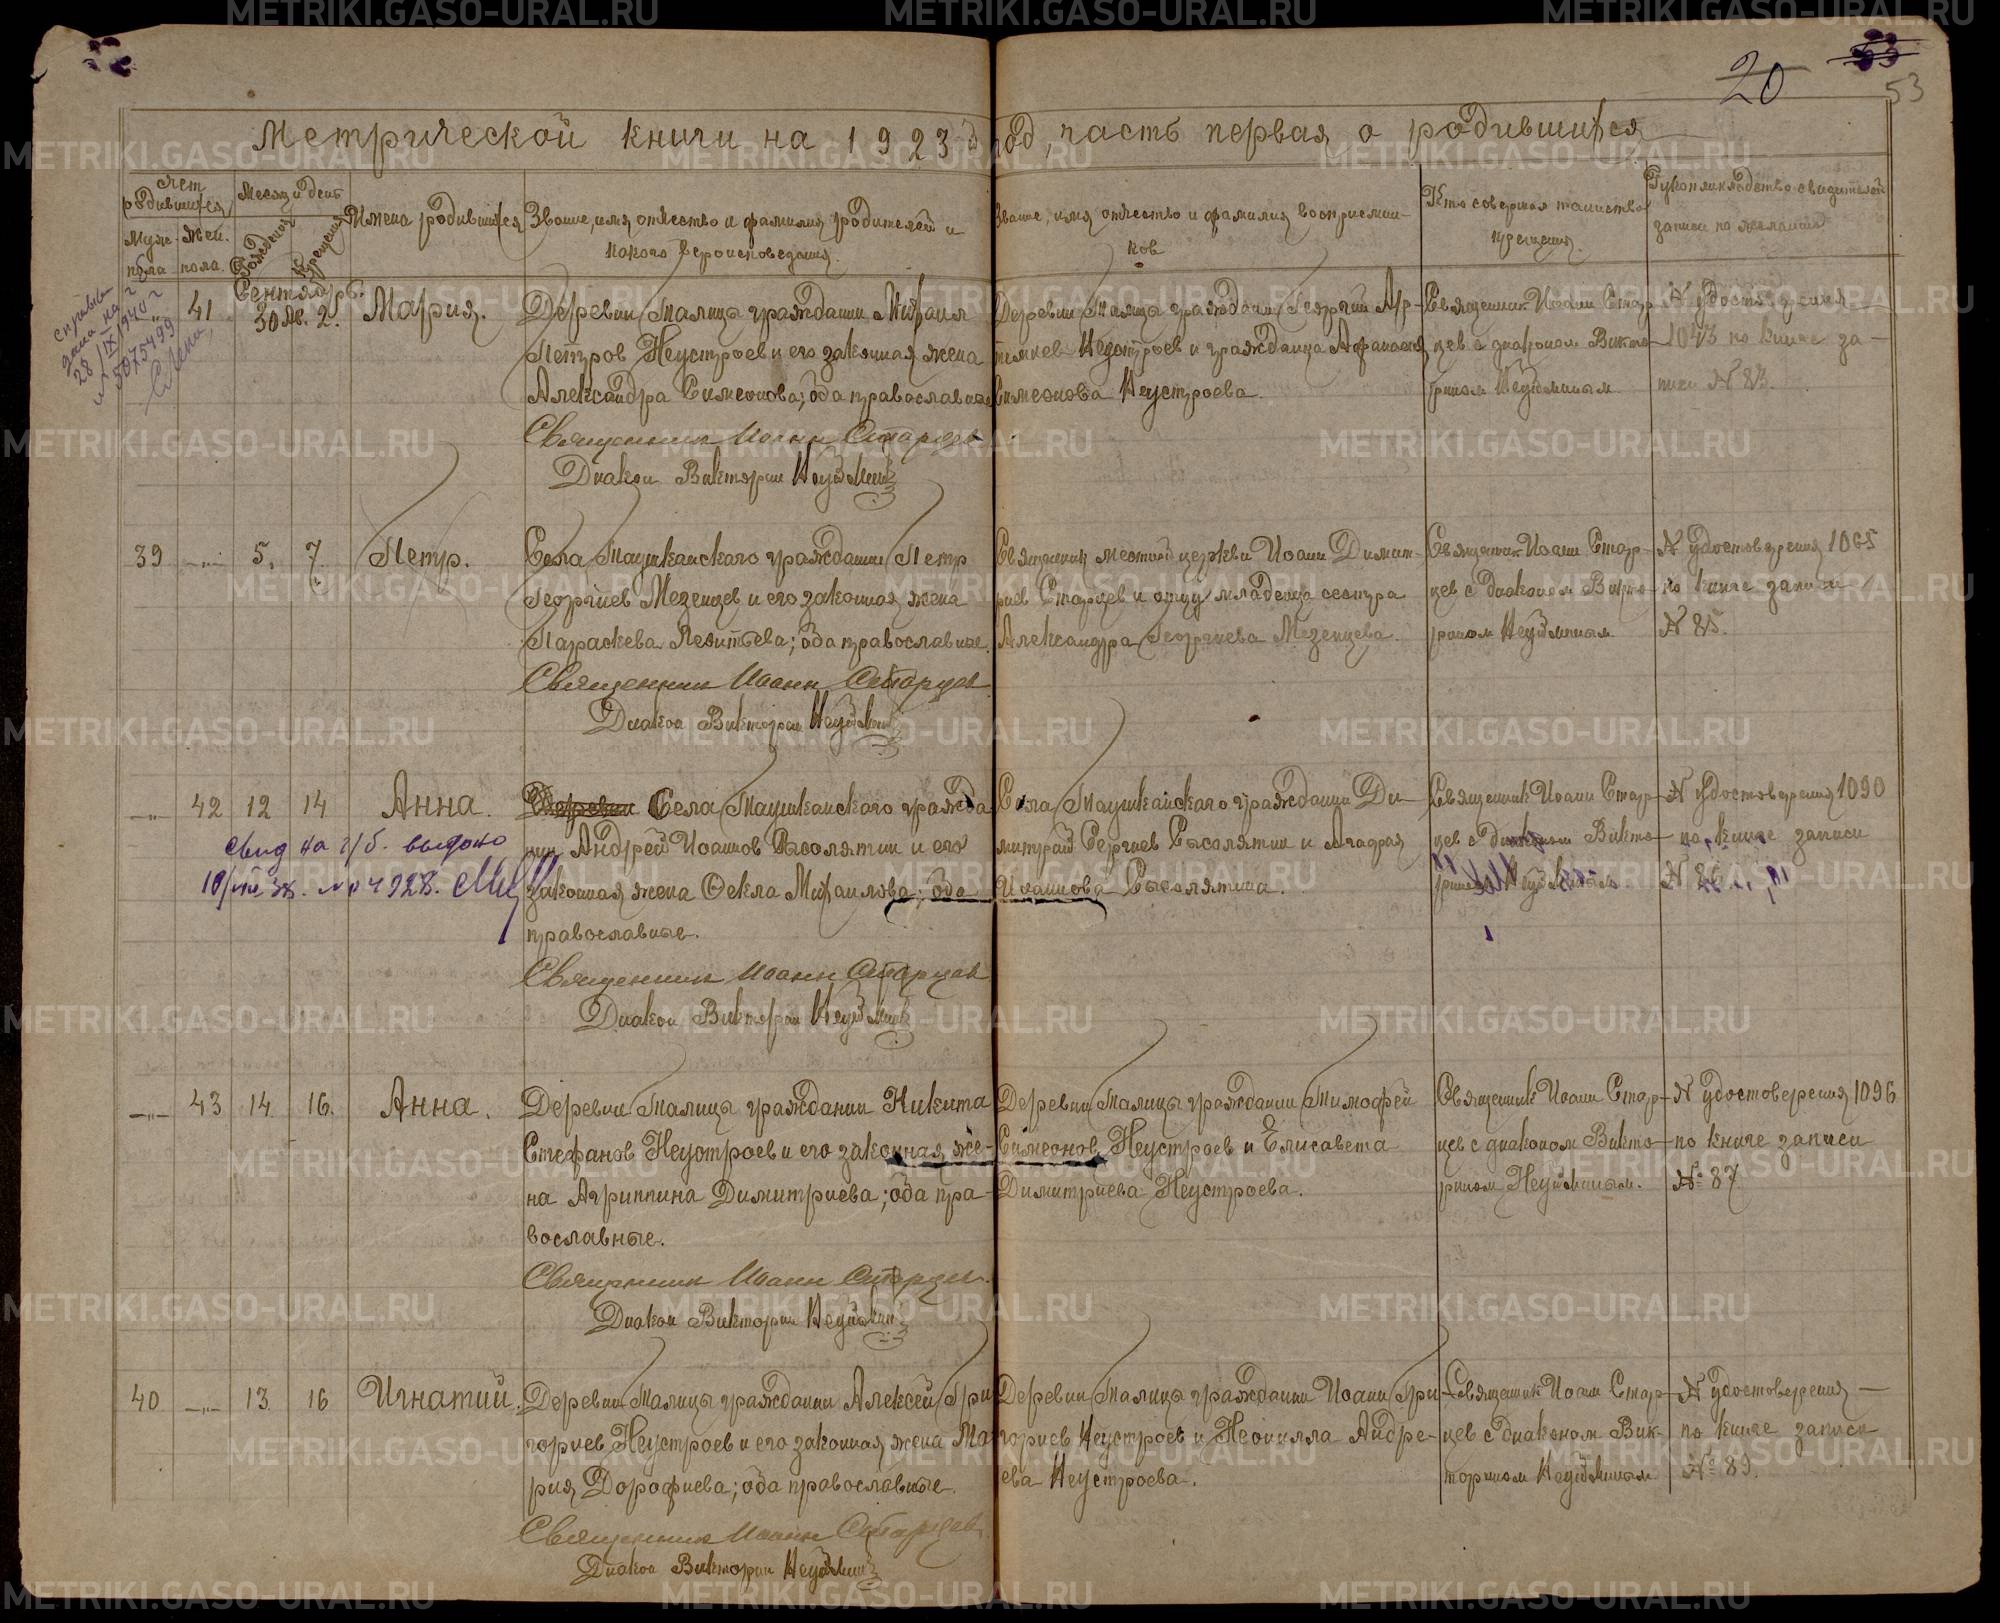 20
53
Метрической книги на 1923 й год, часть первая о родившихся
Счет родившихся
Месяц и день
Имена родившихся
Звание, имя, отчество и фамилия родителей и
какого вероисповедания.
Звание, имя, отчество и фамилия восприемни-
ков
Кто совершал таинство
крещения.
Рукоприкладство свидетелей
записи по желанию
Муж. пола
Жен. пола.
Рождения
Крещения
41
Сентябр.
30
Ок. 2.
Мария.
Деревни Талицы гражданин Михаил
Петров Неустроев и его законная жена
Александра Симеонова; оба православные
Священник Иоанн Старцев
Диакон Викторин Неуймин
Деревни Талицы гражданин Георгий Ар-
темиев Неустроев и гражданка Афанасия
Симеонова Неустроева.
Священник Иоанн Стар-
цев с диаконом Викто-
рином Неуйминым
№ удостоверения
1043 по книге за-
писи № 83.
39 —„— 5. 7. Петр.
Села Таушканского гражданин Петр
Георгиев Мезенцев и его законная жена
Параскева Леонтьева; оба православные.
Священник Иоанн Старцев
Диакон Викторин Неуймин
Священник местной церкви Иоанн Димит-
риев Старцев и отцу младенца сестра
Александра Георгиева Мезенцева.
Священник Иоанн Стар-
цев с диаконом Викто-
рином Неуйминым
№ удостоверения 1065
по книге записи
№ 85.
—„— 42 12 14 Анна.
свид на г/б. выдано
Деревни Села Таушканского гражда-
нин Андрей Иоаннов Сысолятин и его
законная жена Фекла Михаилова; оба
православные.
Священник Иоанн Старцев
Диакон Викторин Неуймин
Села Таушканского гражданин Ди-
митрий Сергиев Сысолятин и Агафия
Иоаннова Сысолятина.
Священник Иоанн Стар-
цев с диаконом Викто-
рином Неуйминым.
№ удостоверения 1090
по книге записи
№ 86
—„— 43 14 16. Анна.
Деревни Талицы гражданин Никита
Стефанов Неустроев и его законная же-
на Агриппина Димитриева; оба пра-
вославные.
Священник Иоанн Старцев.
Диакон Викторин Неуймин
Деревни Талицы гражданин Тимофей
Симеонов Неустроев и Елисавета
Димитриева Неустроева.
Священник Иоанн Стар-
цев с диаконом Викто-
рином Неуйминым.
№ удостоверения 1096
по книге записи
№ 87
40 —„— 13 16 Игнатий.
Деревни Талицы гражданин Алексей Гри-
гориев Неустроев и его законная жена Ма-
рия Дорофиева; оба православные.
Священник Иоанн Старцев
Диакон Викторин Неуймин
Деревни Талицы гражданин Иоанн Гри-
гориев Неустроев и Неонилла Андре-
ева Неустроева.
Священник Иоанн Стар-
цев с диаконом Вик-
торином Неуйминым
№ удостоверения —
по книге записи
№ 89.
METRIKI.GASO-URAL.RU